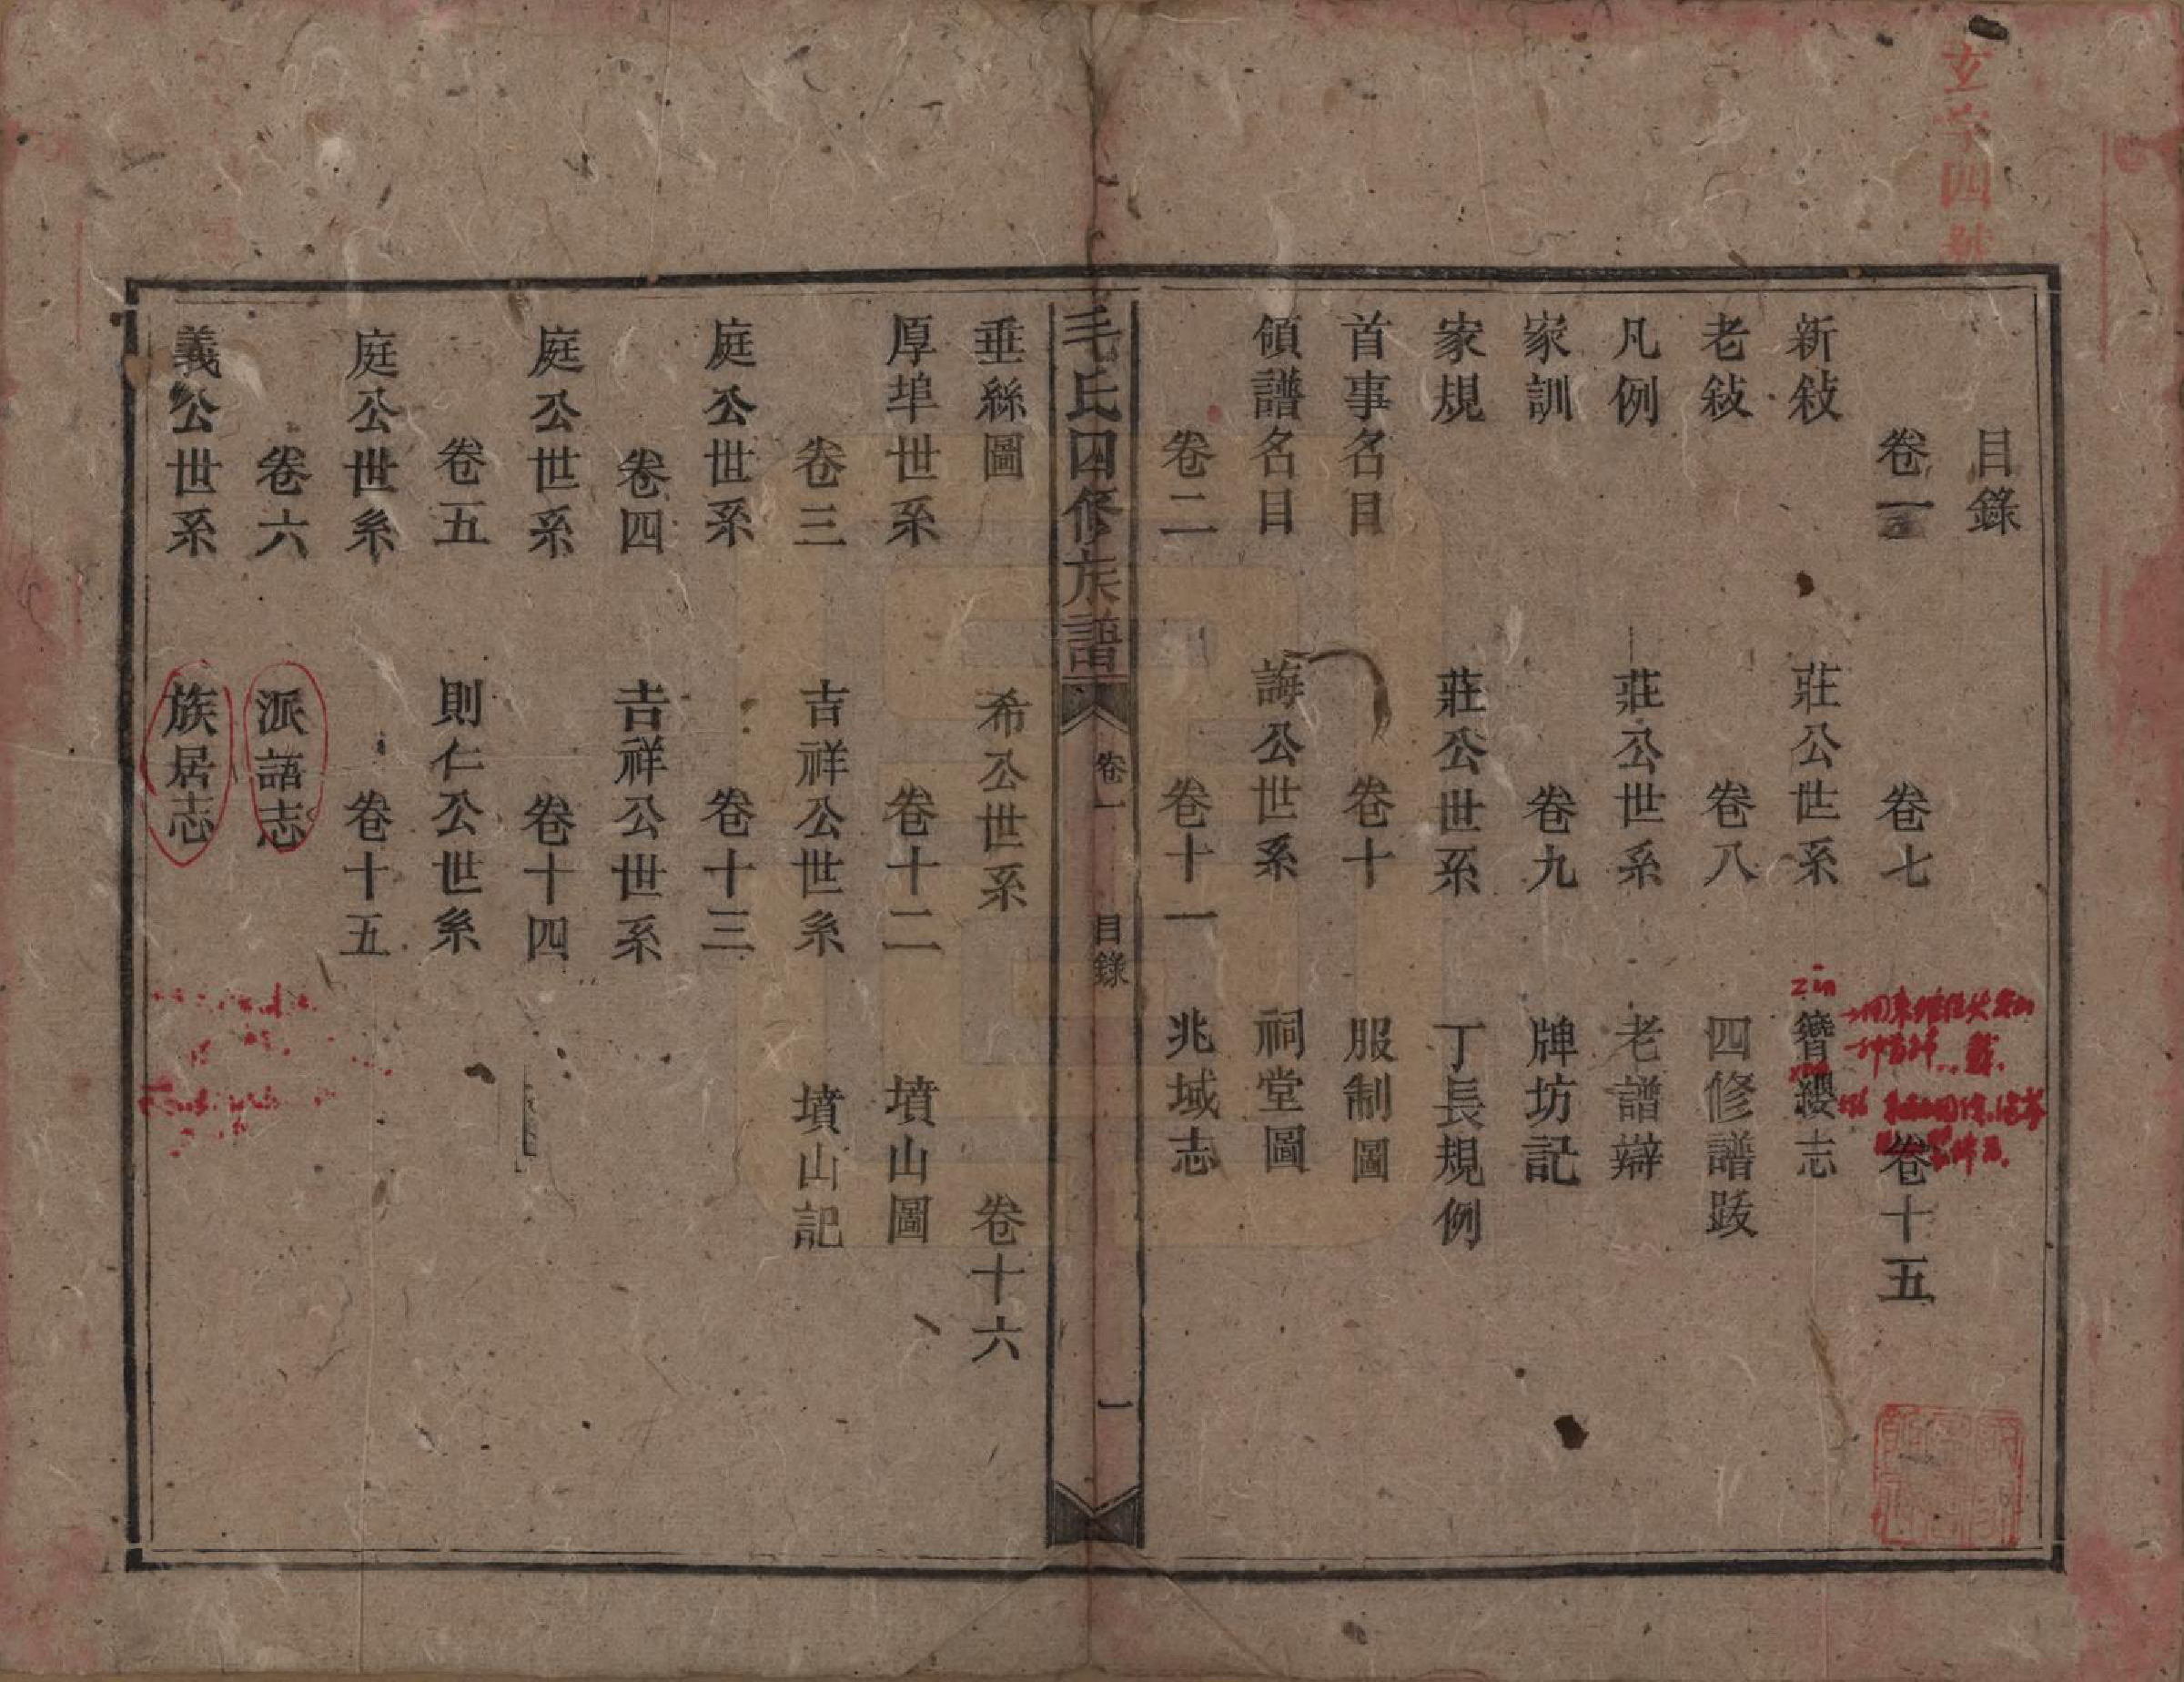 玄字四號
目錄
卷一 卷七 卷十五
新敍 莊公世系 簪纓志
老敍 卷八 四修譜跋
凡例 莊公世系 老譜辯
家訓 卷九 牌坊記
家規 莊公世系 丁長規例
首事名目 卷十 服制圖
領譜名目 誨公世系 祠堂圖
卷二 卷十一 兆域志
毛氏四修族譜 卷一 目錄 一
垂絲圖 希公世系 卷十六
厚埠世系 卷十二 墳山圖
卷三 吉祥公世系 墳山記
庭公世系 卷十三
卷四 吉祥公世系
庭公世系 卷十四
卷五 則仁公世系
庭公世系 卷十五
卷六 派語志
義公世系 族居志